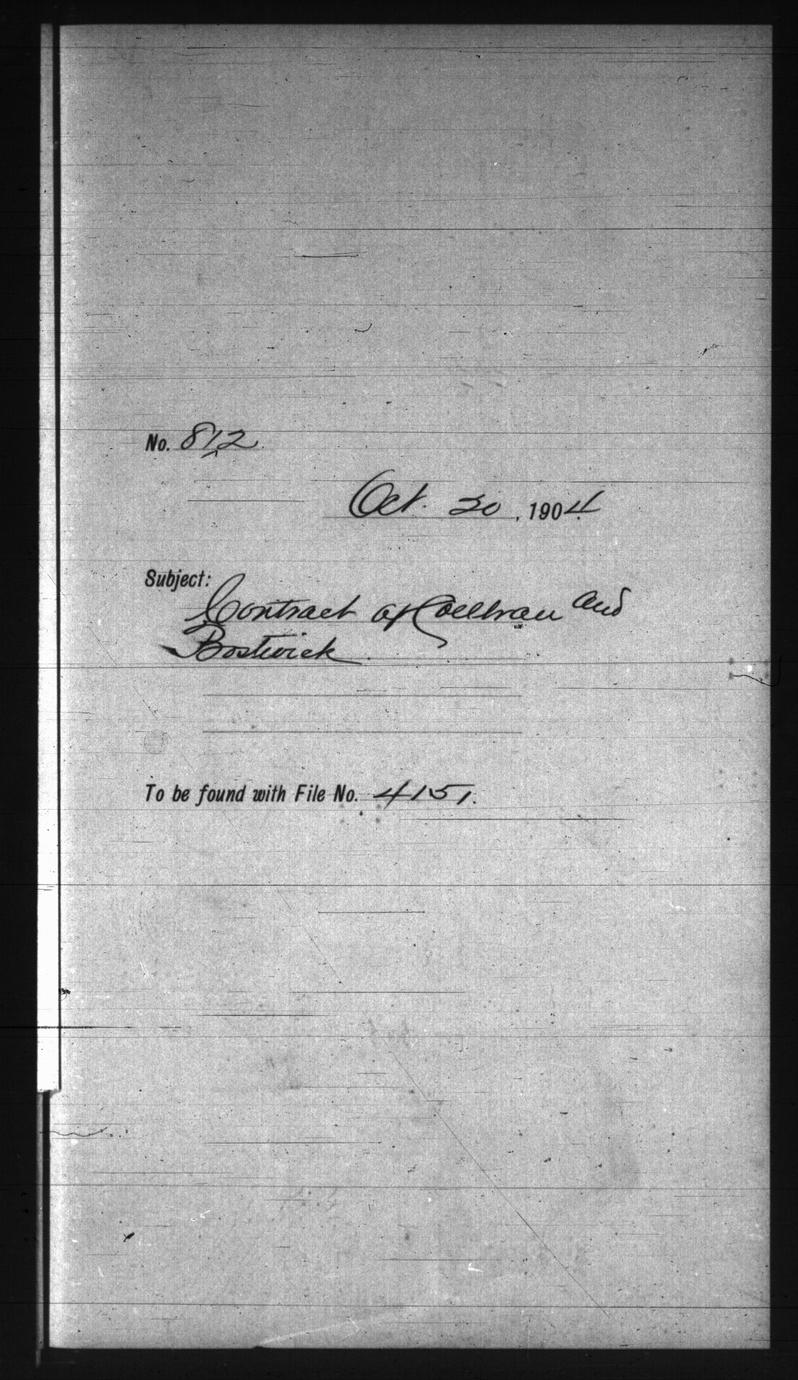 No. 812
Oct. 20, 1904
Subject:
Contract of Collbran and
Bostwick
To be found with File No. 4151.